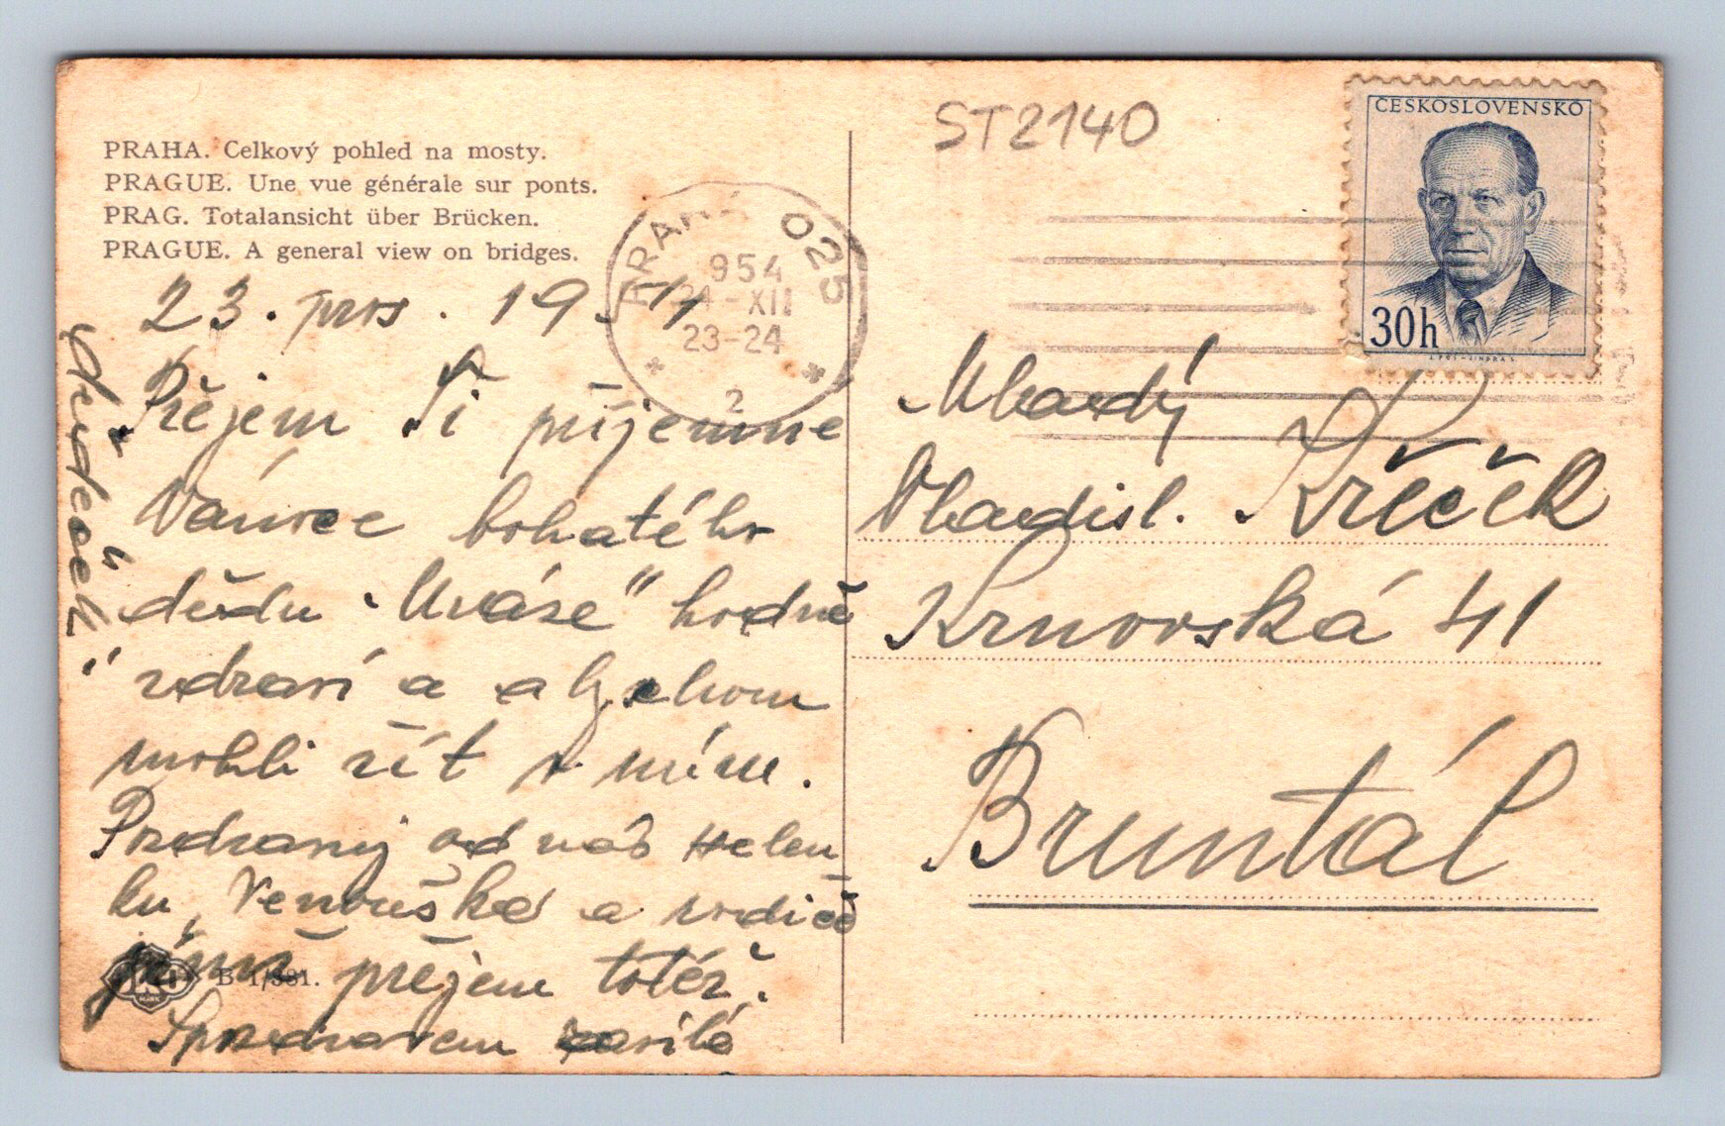 PRAHA. Celkový pohled na mosty.
PRAGUE. Une vue générale sur ponts.
PRAG. Totalansicht über Brücken.
PRAGUE. A general view on bridges.
ST2140
ČESKOSLOVENSKO
30h
PRAHA 025
954
24-XII
23-24
2
23. pros. 1954
Přejem Ti příjemné
Vánoce bohatého
dědu Mráze" hodně
zdraví a abychom
mohli žít v míru.
Pozdravuj od nás Helen
ku, Venouška a rodič
přejem totéž.
S pozdravem
dědeček!
Mladý
Vladisl. Křeček
Krnovská 41
Bruntál
B 1/331.